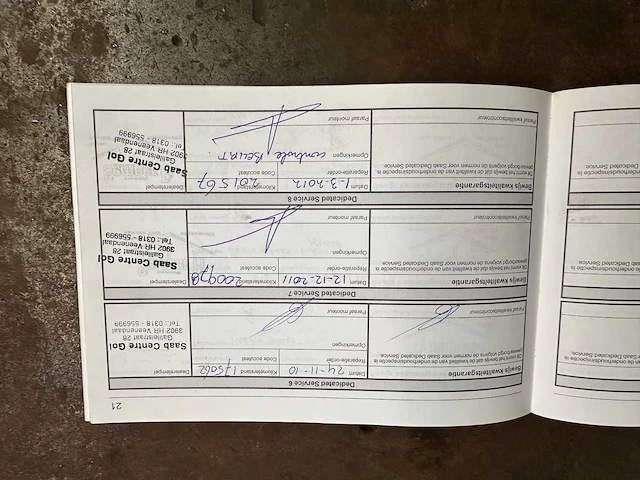 21
Dedicated Service 6
Bewijs kwaliteitsgarantie
Datum 24-11-10
Kilometerstand 175062
Dealerstempel
De voorm bewijs dat de kwaliteit van de onderhoudsinspectie is
gewaarborgd volgens de normen voor Saab Dedicated Service.
Reparatie-order
Code accutest
Opmerkingen
Paraaf kwaliteitscontroleur
Paraaf monteur
Saab Centre Gol
Galileistraat 28
3902 HR Veenendaal
Tel.: 0318 - 556999
Dedicated Service 7
Bewijs kwaliteitsgarantie
Datum 12-12-2011
Kilometerstand 200978
Dealerstempel
De voorm bewijs dat de kwaliteit van de onderhoudsinspectie is
gewaarborgd volgens de normen voor Saab Dedicated Service.
Reparatie-order
Code accutest
Opmerkingen
Paraaf kwaliteitscontroleur
Paraaf monteur
Saab Centre Gol
Galileistraat 28
3902 HR Veenendaal
Tel.: 0318 - 556999
Dedicated Service 8
Bewijs kwaliteitsgarantie
Datum 1-3-2012
Kilometerstand 201567
Dealerstempel
De voorm bewijs dat de kwaliteit van de onderhoudsinspectie is
gewaarborgd volgens de normen voor Saab Dedicated Service.
Reparatie-order
Code accutest
Opmerkingen controle BEURT
Paraaf kwaliteitscontroleur
Paraaf monteur
Saab Centre Gol
Galileistraat 28
3902 HR Veenendaal
Tel.: 0318 - 556999